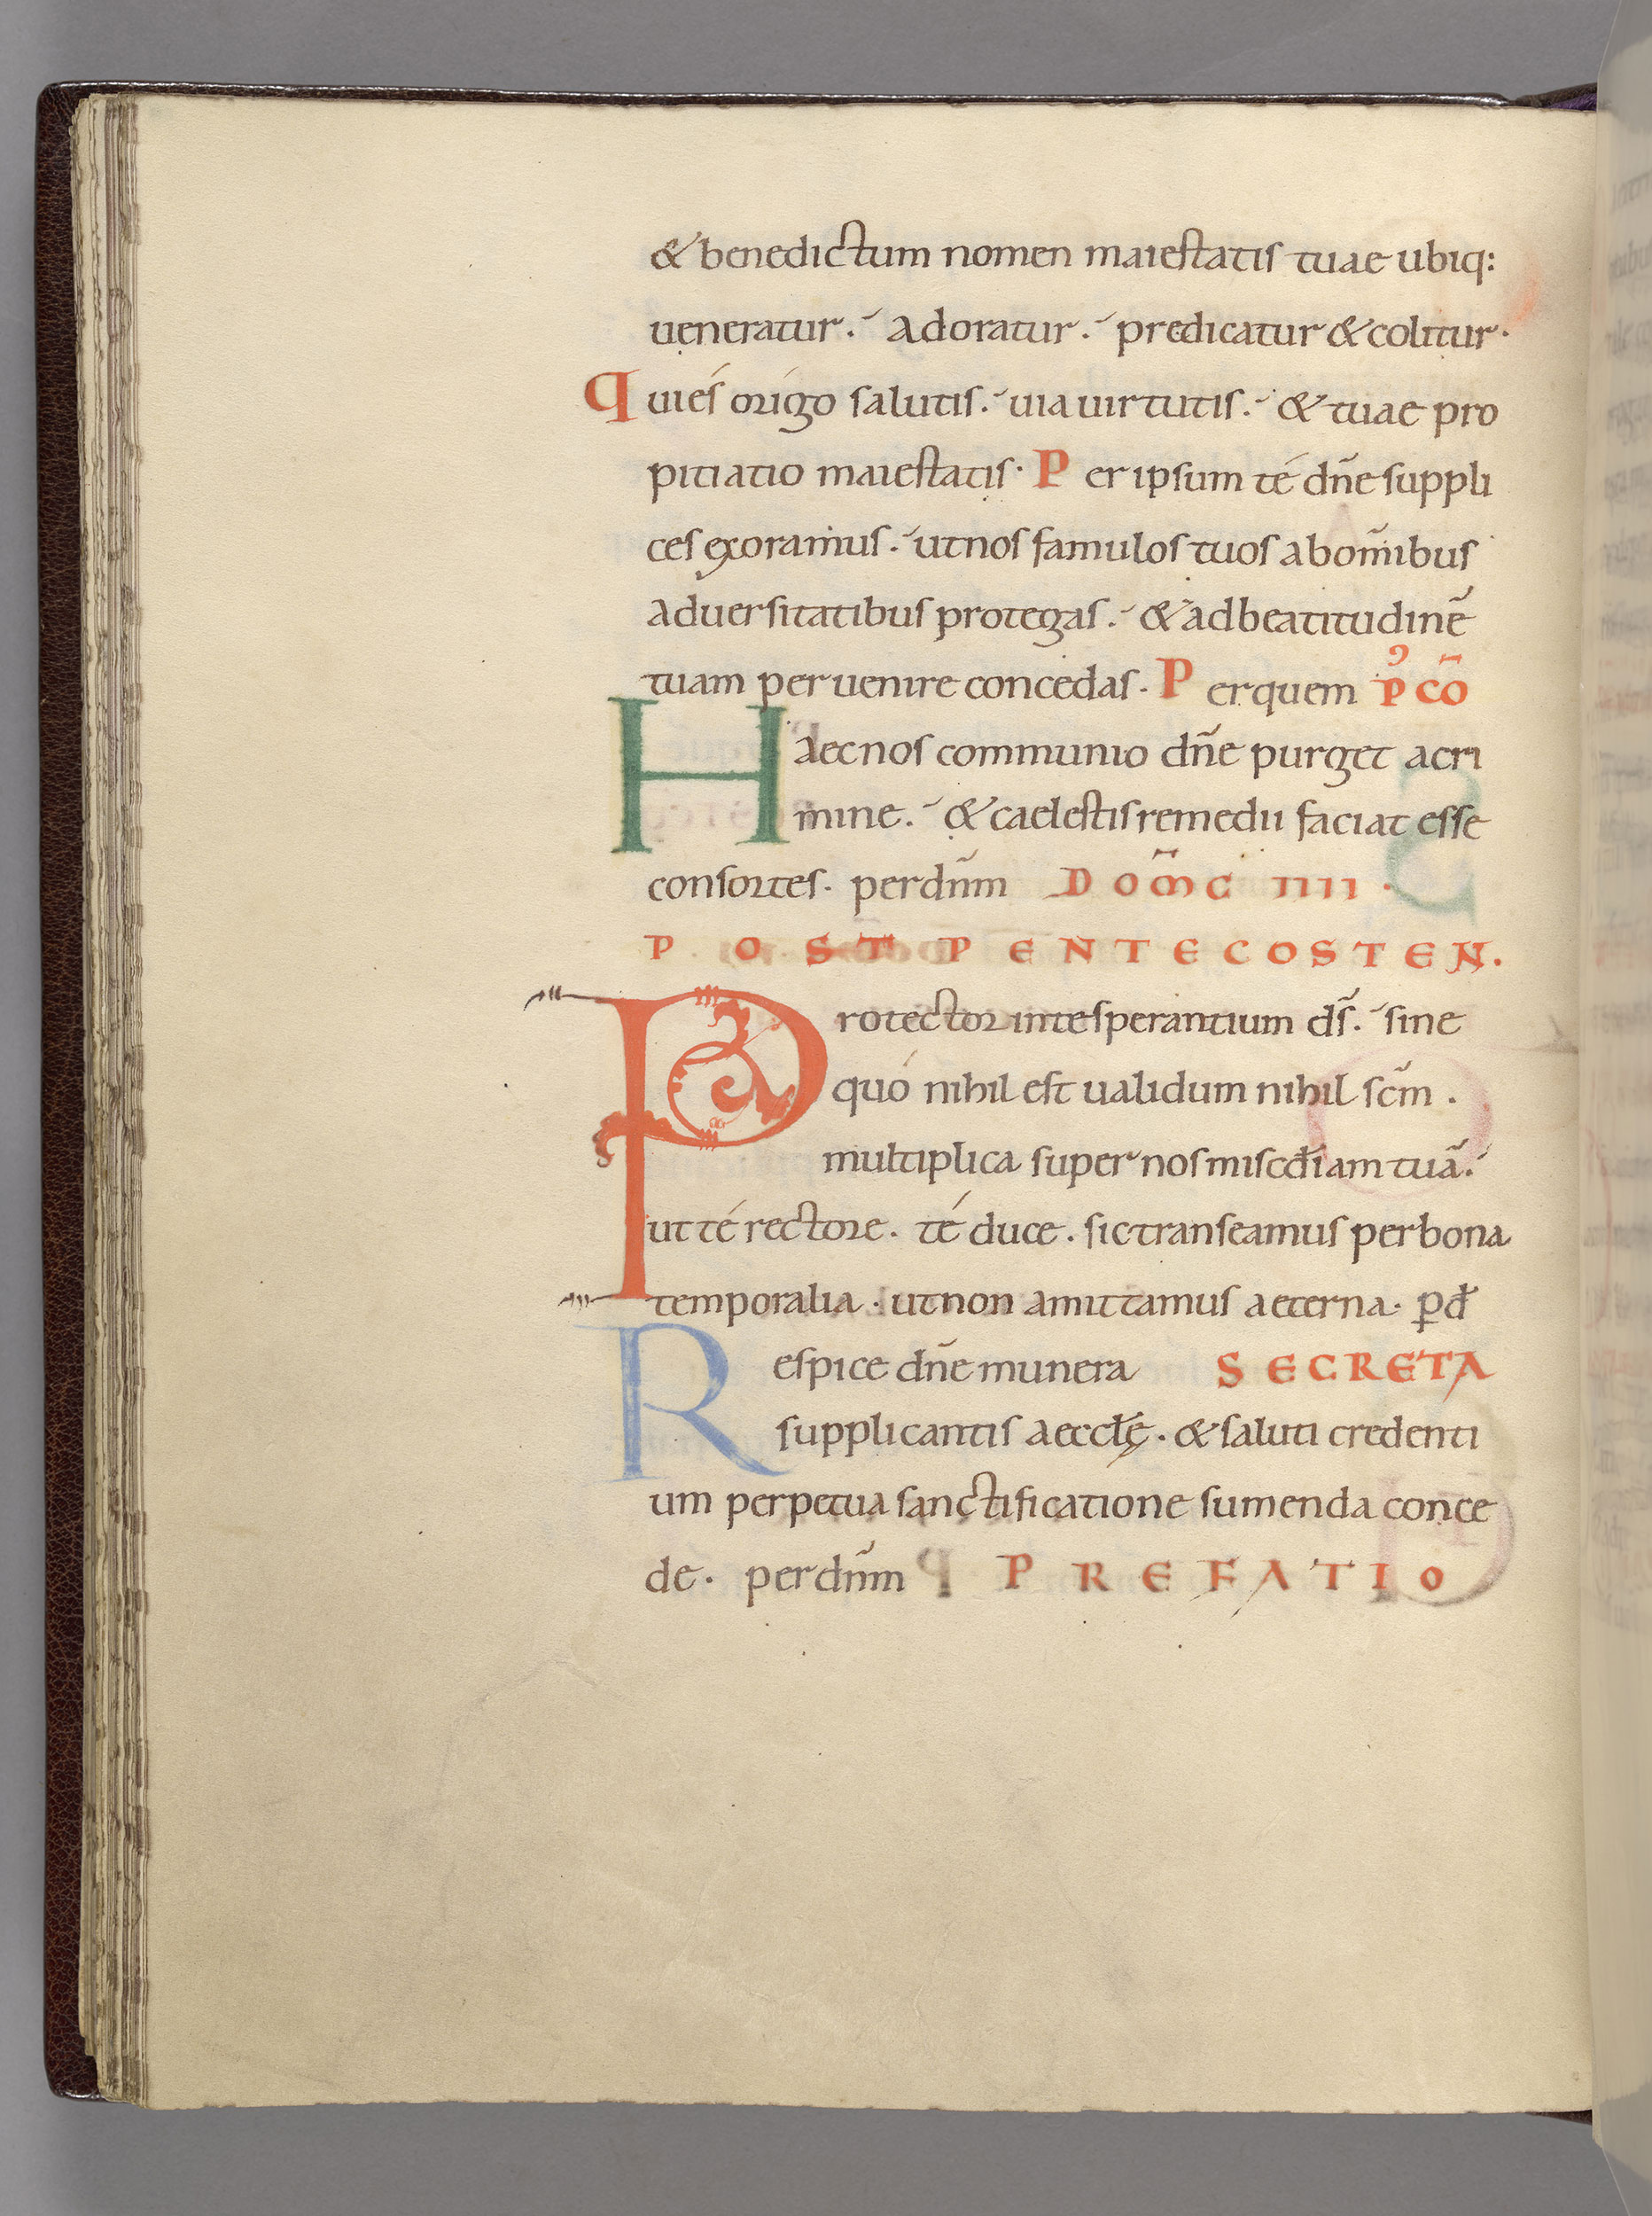 & benedictum nomen maiestatis tuae ubiq:
ueneratur. adoratur. predicatur & colitur.
Qui és orígo salutis. uia uirtutis. & tuae pro
pitiatio maiestatis. Per ipsum té dñe suppli
ces exoramus. ut nos famulos tuos ab om̄ibus
aduersitatibus protegas. & ad beatitudinē
tuam peruenire concedas. Per quem P̉ CŌ
Haec nos communio dñe purget a cri
mine. & caelestis remedii faciat esse
consortes. per dn̄m DOM̄C IIII.
POST PENTECOSTEN.
Protector in te sperantium ds̄. sine
quó nihil est ualidum nihil sc̄m.
multiplica super nos miscđiam tuā.
ut té rectore. té duce. sic transeamus per bona
temporalia. ut non amittamus aeterna. ꝑ đ
Respice dñe munera SECRETA
supplicantis aeccłę. & saluti credenti
um perpetua sanctificatione sumenda conce
de. per dn̄m PREFATIO